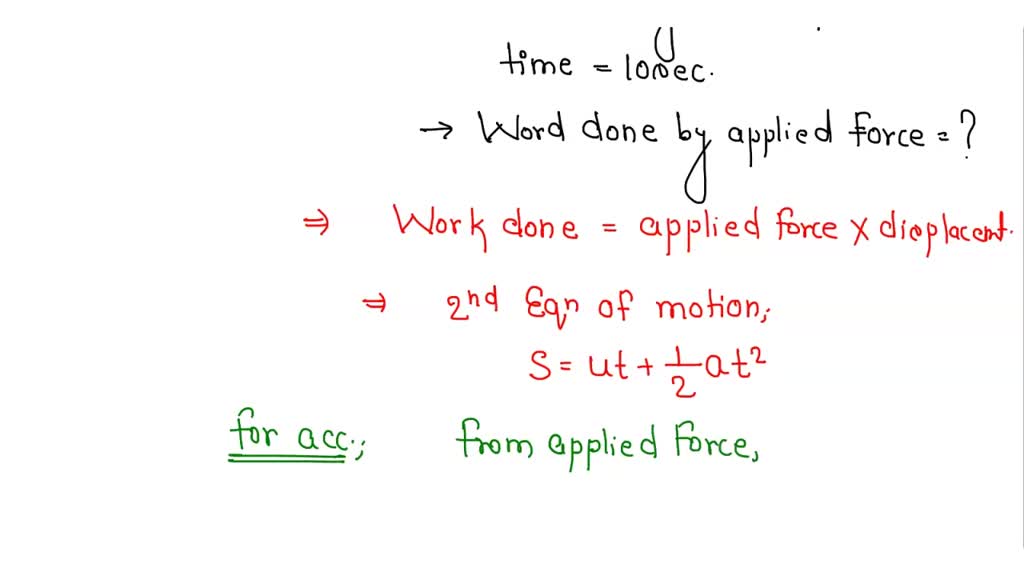 time = 10 sec.
→ Word done by applied force = ?
⇒ Work done = applied force × displacent.
⇒ 2nd Eqn of motion;
S = ut + 1/2 at²
for acc.; from applied force,